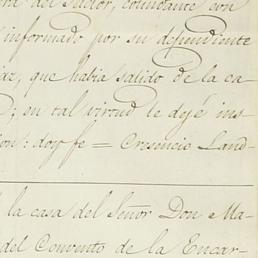 del Autor, cohondante con
informado por su dependiente
que habia salido de la ca-
en tal virtud le dejé ins-
doy fe = Cresencio Land-
la casa del Señor Don Ma-
del Convento de la Encar-